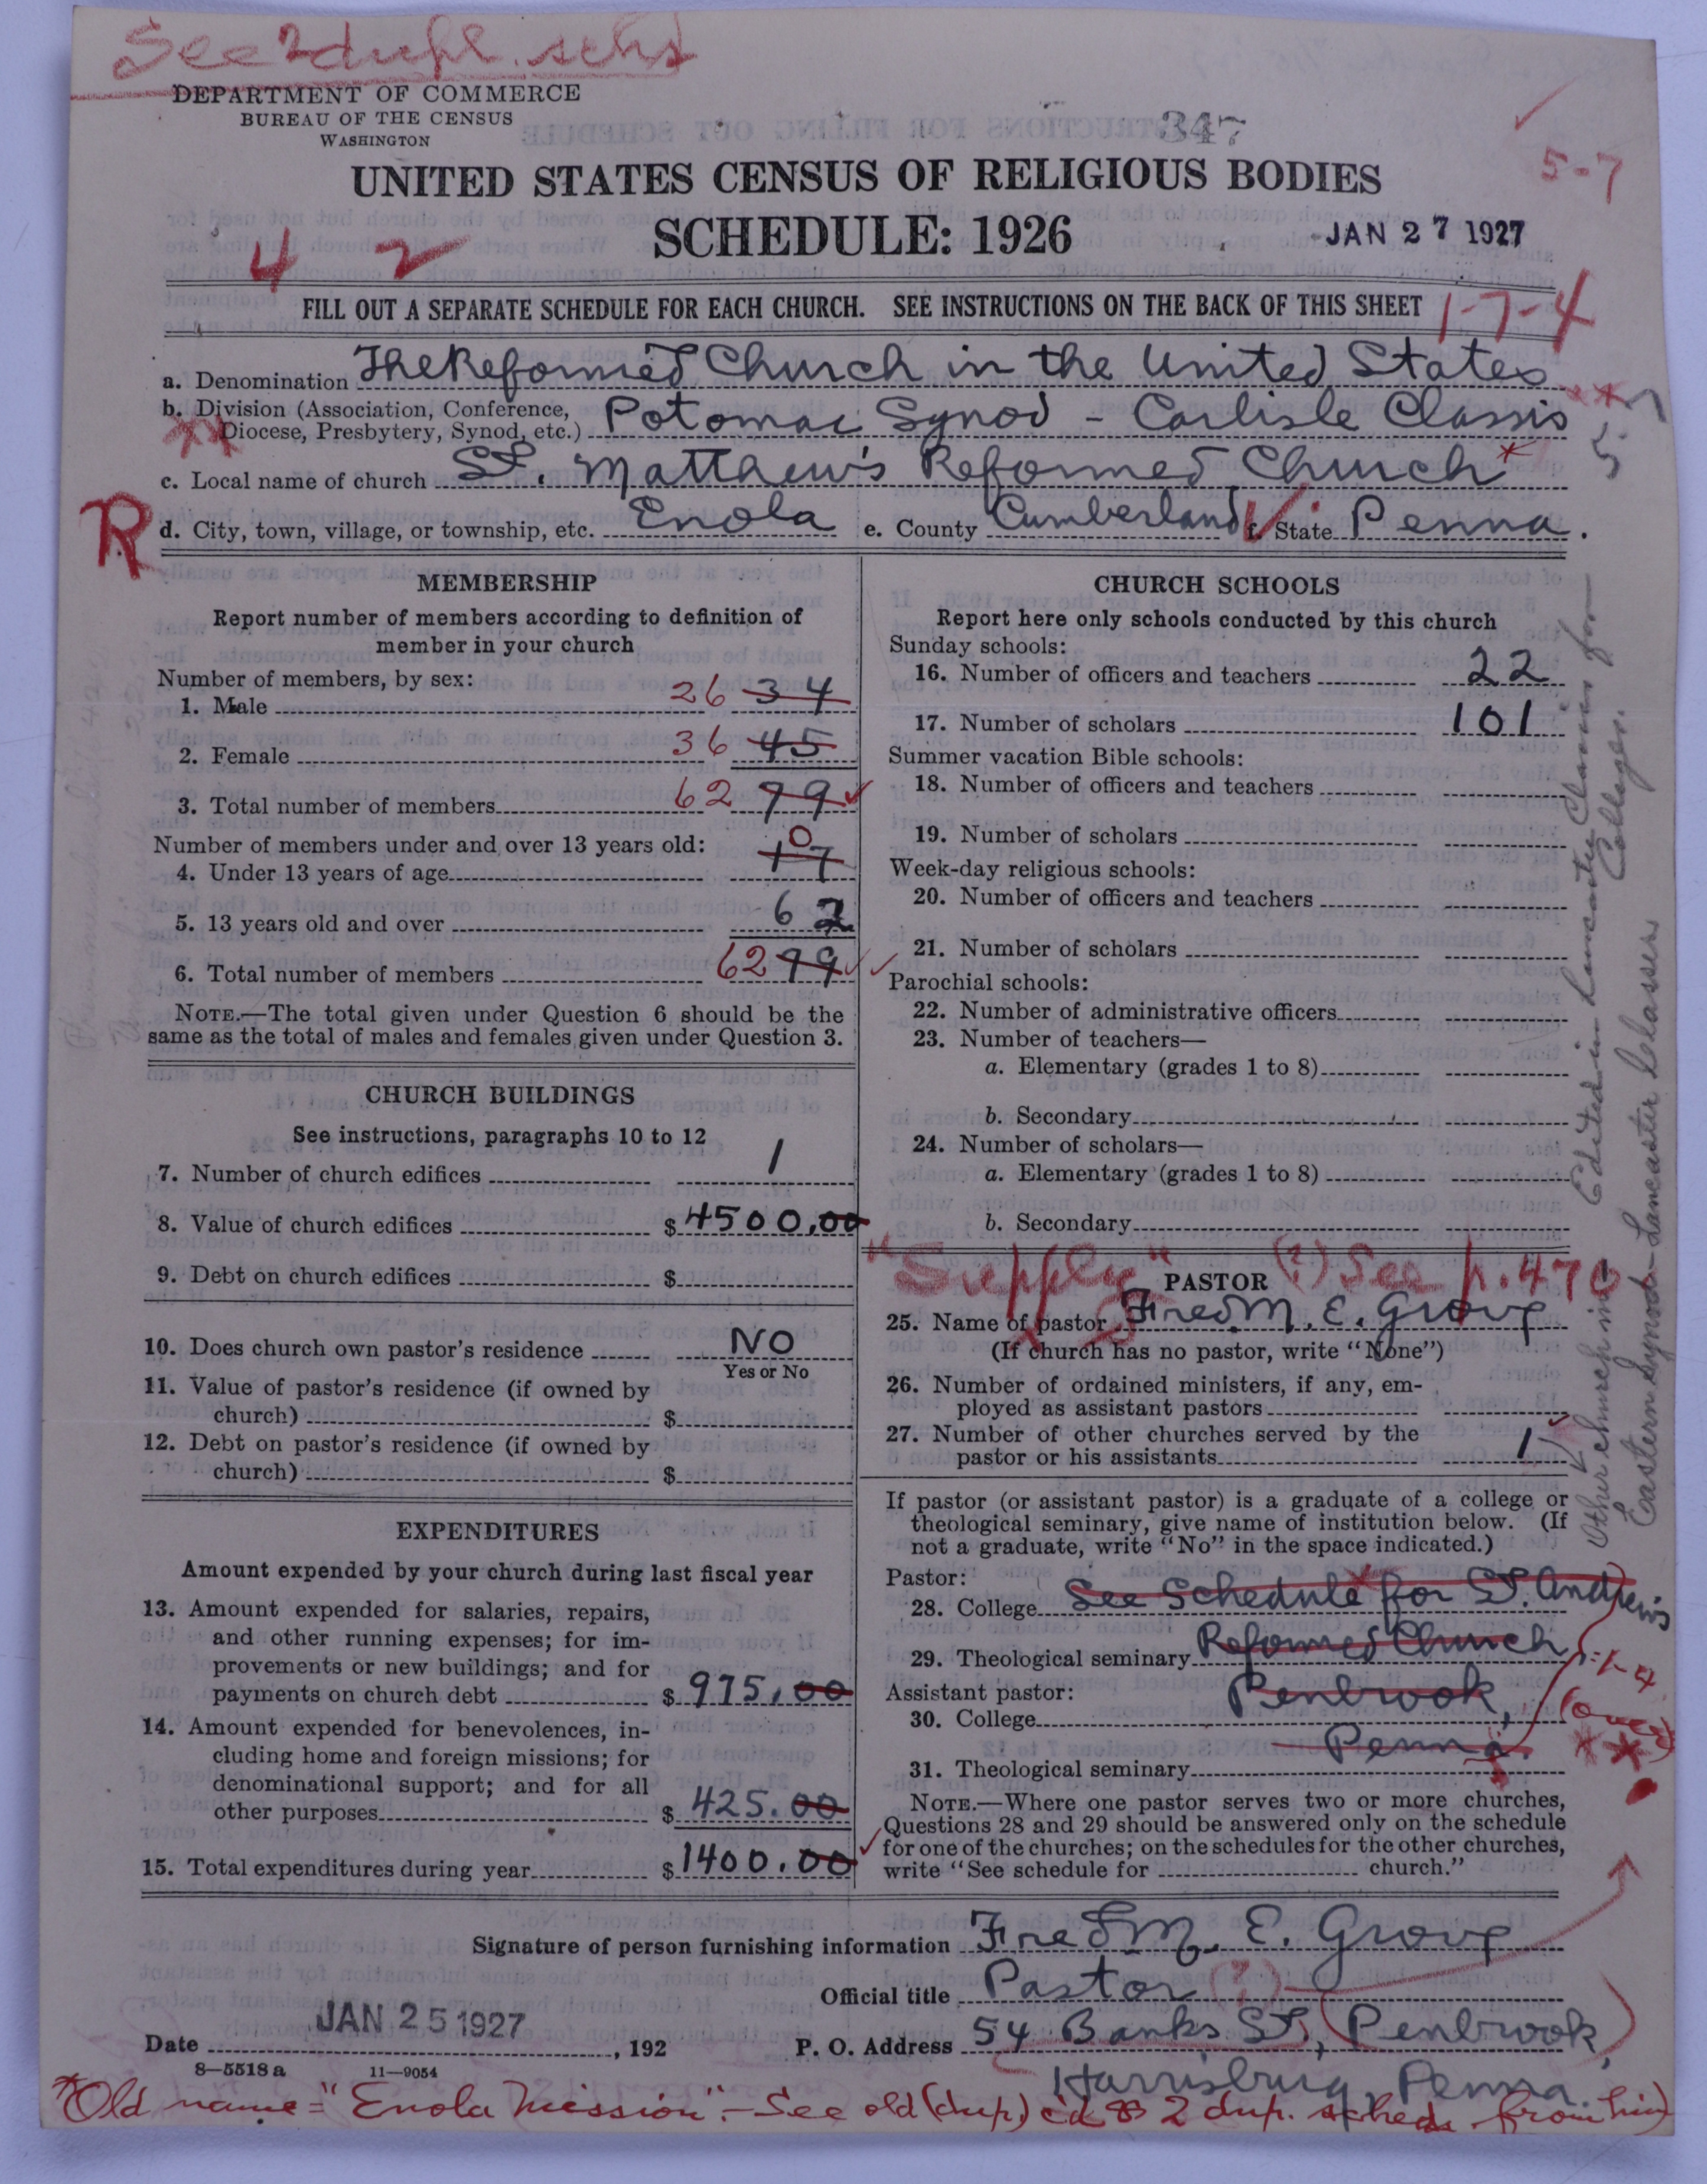 See 2 dupl. schs
DEPARTMENT OF COMMERCE
BUREAU OF THE CENSUS
WASHINGTON
347
UNITED STATES CENSUS OF RELIGIOUS BODIES
5-7
SCHEDULE: 1926
JAN 27 1927
4 2
FILL OUT A SEPARATE SCHEDULE FOR EACH CHURCH. SEE INSTRUCTIONS ON THE BACK OF THIS SHEET
1-7-4
a. Denomination The Reformed Church in the United States
b. Division (Association, Conference, Diocese, Presbytery, Synod, etc.) Potomac Synod - Carlisle Classis
c. Local name of church St. Matthew's Reformed Church *
R
d. City, town, village, or township, etc. Enola e. County Cumberland f. State Penna.
MEMBERSHIP
Report number of members according to definition of
member in your church
Number of members, by sex:
1. Male 26 34
2. Female 36 45
3. Total number of members 62 79
Number of members under and over 13 years old:
4. Under 13 years of age 0 17
5. 13 years old and over 62
6. Total number of members 62 79
NOTE.—The total given under Question 6 should be the
same as the total of males and females given under Question 3.
CHURCH BUILDINGS
See instructions, paragraphs 10 to 12
7. Number of church edifices 1
8. Value of church edifices $4500.00
9. Debt on church edifices $
10. Does church own pastor's residence NO
Yes or No
11. Value of pastor's residence (if owned by
church) $
12. Debt on pastor's residence (if owned by
church) $
EXPENDITURES
Amount expended by your church during last fiscal year
13. Amount expended for salaries, repairs,
and other running expenses; for im-
provements or new buildings; and for
payments on church debt $975.00
14. Amount expended for benevolences, in-
cluding home and foreign missions; for
denominational support; and for all
other purposes $425.00
15. Total expenditures during year $1400.00
CHURCH SCHOOLS
Report here only schools conducted by this church
Sunday schools:
16. Number of officers and teachers 22
17. Number of scholars 101
Summer vacation Bible schools:
18. Number of officers and teachers
19. Number of scholars
Week-day religious schools:
20. Number of officers and teachers
21. Number of scholars
Parochial schools:
22. Number of administrative officers
23. Number of teachers—
a. Elementary (grades 1 to 8)
b. Secondary
24. Number of scholars—
a. Elementary (grades 1 to 8)
b. Secondary
"Supply" (?) See p. 470
PASTOR
25. Name of pastor Fred M. E. Grove
(If church has no pastor, write "None")
26. Number of ordained ministers, if any, em-
ployed as assistant pastors
27. Number of other churches served by the
pastor or his assistants 1
If pastor (or assistant pastor) is a graduate of a college or
theological seminary, give name of institution below. (If
not a graduate, write "No" in the space indicated.)
Pastor:
28. College See Schedule for St. Andrew's
29. Theological seminary Reformed Church
Assistant pastor: Penbrook,
30. College
Penna.
31. Theological seminary
1-7-4
(over)
NOTE.—Where one pastor serves two or more churches,
Questions 28 and 29 should be answered only on the schedule
for one of the churches; on the schedules for the other churches,
write "See schedule for church."
Other church in Eastern Synod - Lancaster Classis
Edited in Lancaster Classis for
Colleges.
Signature of person furnishing information Fred M. E. Grove
Official title Pastor (?)
Date JAN 25 1927, 192
P. O. Address 54 Banks St, (Penbrook,)
Harrisburg, Penna.
8—5518 a 11—9054
*Old name = "Enola Mission". - See old (dup.) c'd & 2 dup. scheds from him